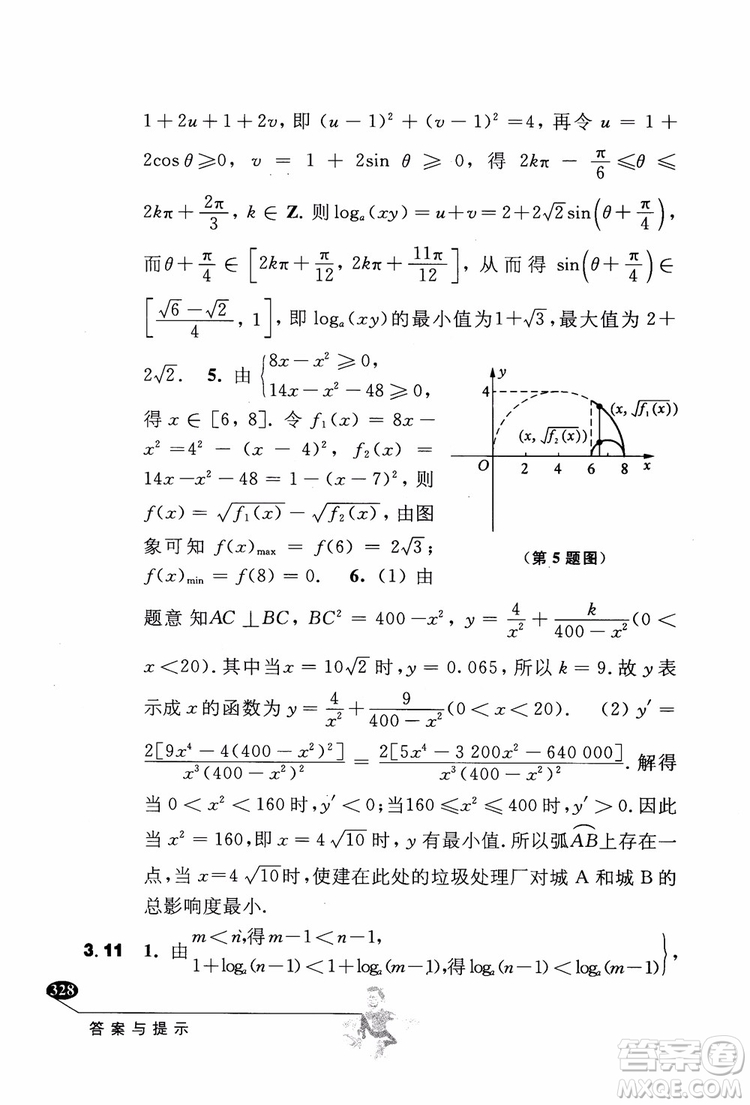 1+2u+1+2v, 即 (u-1)² + (v-1)² =4, 再令 u = 1+
2cos θ⩾0, v = 1+2sin θ ⩾ 0, 得 2kπ - π/6 ⩽θ ⩽
2kπ + 2π/3, k ∈ Z. 则 logₐ(xy)=u+v=2+2√2sin(θ+π/4),
而θ+π/4 ∈ [2kπ+π/12, 2kπ+11π/12], 从而得 sin(θ+π/4)∈
[(√6-√2)/4, 1], 即 logₐ(xy)的最小值为1+√3, 最大值为 2+
2√2. 5. 由 {8x-x²⩾0,
14x-x²-48⩾0,
得 x ∈ [6, 8]. 令 f₁(x) = 8x-
x² =4² -(x-4)², f₂(x) =
14x-x²-48 = 1-(x-7)², 则
f(x)=√f₁(x) -√f₂(x), 由图
象可知 f(x)max = f(6) = 2√3;
f(x)min = f(8) = 0. 6. (1) 由
y
4
(x, √f₁(x))
(x, √f₂(x))
O 2 4 6 8 x
(第 5 题图)
题意知AC ⊥BC, BC² = 400-x², y = 4/x² + k/(400-x²) (0<
x<20). 其中当x = 10√2 时, y = 0.065, 所以 k = 9. 故 y 表
示成 x 的函数为 y = 4/x² + 9/(400-x²) (0<x<20). (2) y′ =
2[9x⁴-4(400-x²)²]/x³(400-x²)² = 2[5x⁴-3 200x²-640 000]/x³(400-x²)². 解得
当 0<x²<160 时, y′<0; 当160⩽x²⩽400 时, y′>0. 因此
当 x² =160, 即 x = 4 √10时, y 有最小值. 所以弧AB上存在一
点, 当 x=4 √10时, 使建在此处的垃圾处理厂对城 A 和城 B 的
总影响度最小.
3.11 1. 由 m<n, 得 m-1<n-1,
1+logₐ(n-1)<1+logₐ(m-1), 得 logₐ(n-1)<logₐ(m-1)},
328
答案与提示
答案圈
MXQE.COM